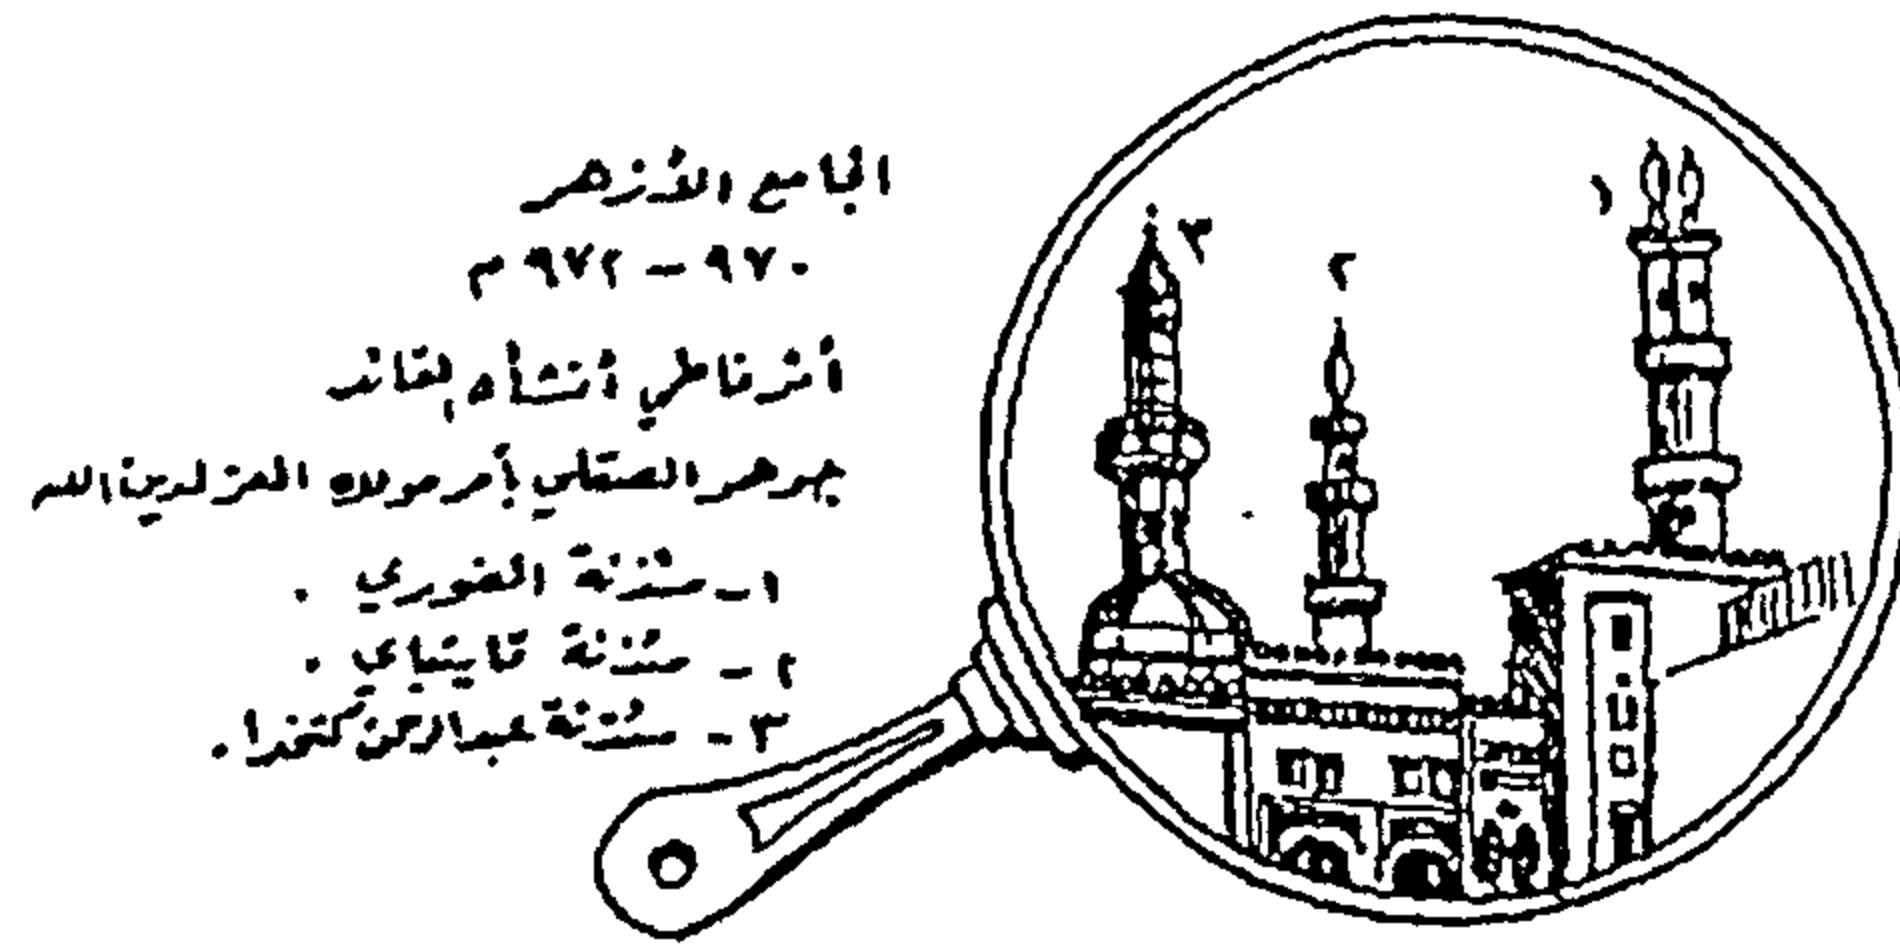 الجامع الأزهر
٩٧٠ - ٩٧٢ م
أثر فاطمي أنشأه القائد
جوهر الصقلي بأمر مولاه المعز لدين الله
١ - مئذنة الغوري .
٢ - مئذنة قايتباي .
٣ - مئذنة عبدالرحمن كتخدا .
١
٢
٣